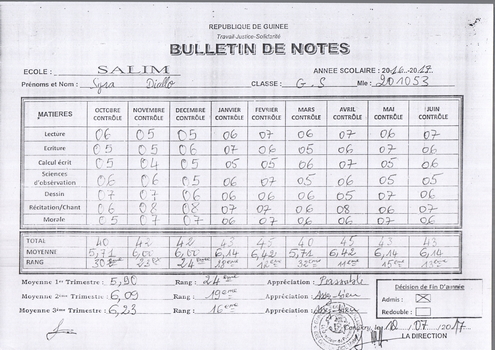 REPUBLIQUE DE GUINEE
Travail-Justice-Solidarité
BULLETIN DE NOTES
ECOLE : SALIM ANNEE SCOLAIRE : 2016-2017
Prénoms et Nom : Syra Diallo CLASSE : G.S Mle : 201053
MATIERES OCTOBRE CONTRÔLE NOVEMBRE CONTRÔLE DECEMBRE CONTRÔLE JANVIER CONTRÔLE FEVRIER CONTRÔLE MARS CONTRÔLE AVRIL CONTRÔLE MAI CONTRÔLE JUIN CONTRÔLE
Lecture 06 05 05 06 07 06 07 06 07
Ecriture 05 05 06 07 06 05 06 07 06
Calcul écrit 05 04 05 05 05 06 07 05 06
Sciences d'observation 06 06 05 06 07 05 05 06 05
Dessin 07 07 06 06 06 06 05 07 06
Récitation/Chant 06 08 08 07 07 06 08 06 07
Morale 05 07 07 06 07 06 07 06 06
TOTAL 40 42 42 43 45 40 45 43 43
MOYENNE 5,71 6,00 6,00 6,14 6,42 5,71 6,42 6,14 6,14
RANG 24ème 19ème 12ème 32ème 11ème 15ème 13ème
Moyenne 1er Trimestre : 5,90 Rang : 24ème Appréciation : Passable
Moyenne 2ème Trimestre : 6,09 Rang : 19ème Appréciation : Ass-bien
Moyenne 3ème Trimestre : 6,23 Rang : 16ème
Décision de Fin D'année
Admis :
Redouble :
Conakry, le 10 / 07 / 2017
LA DIRECTION